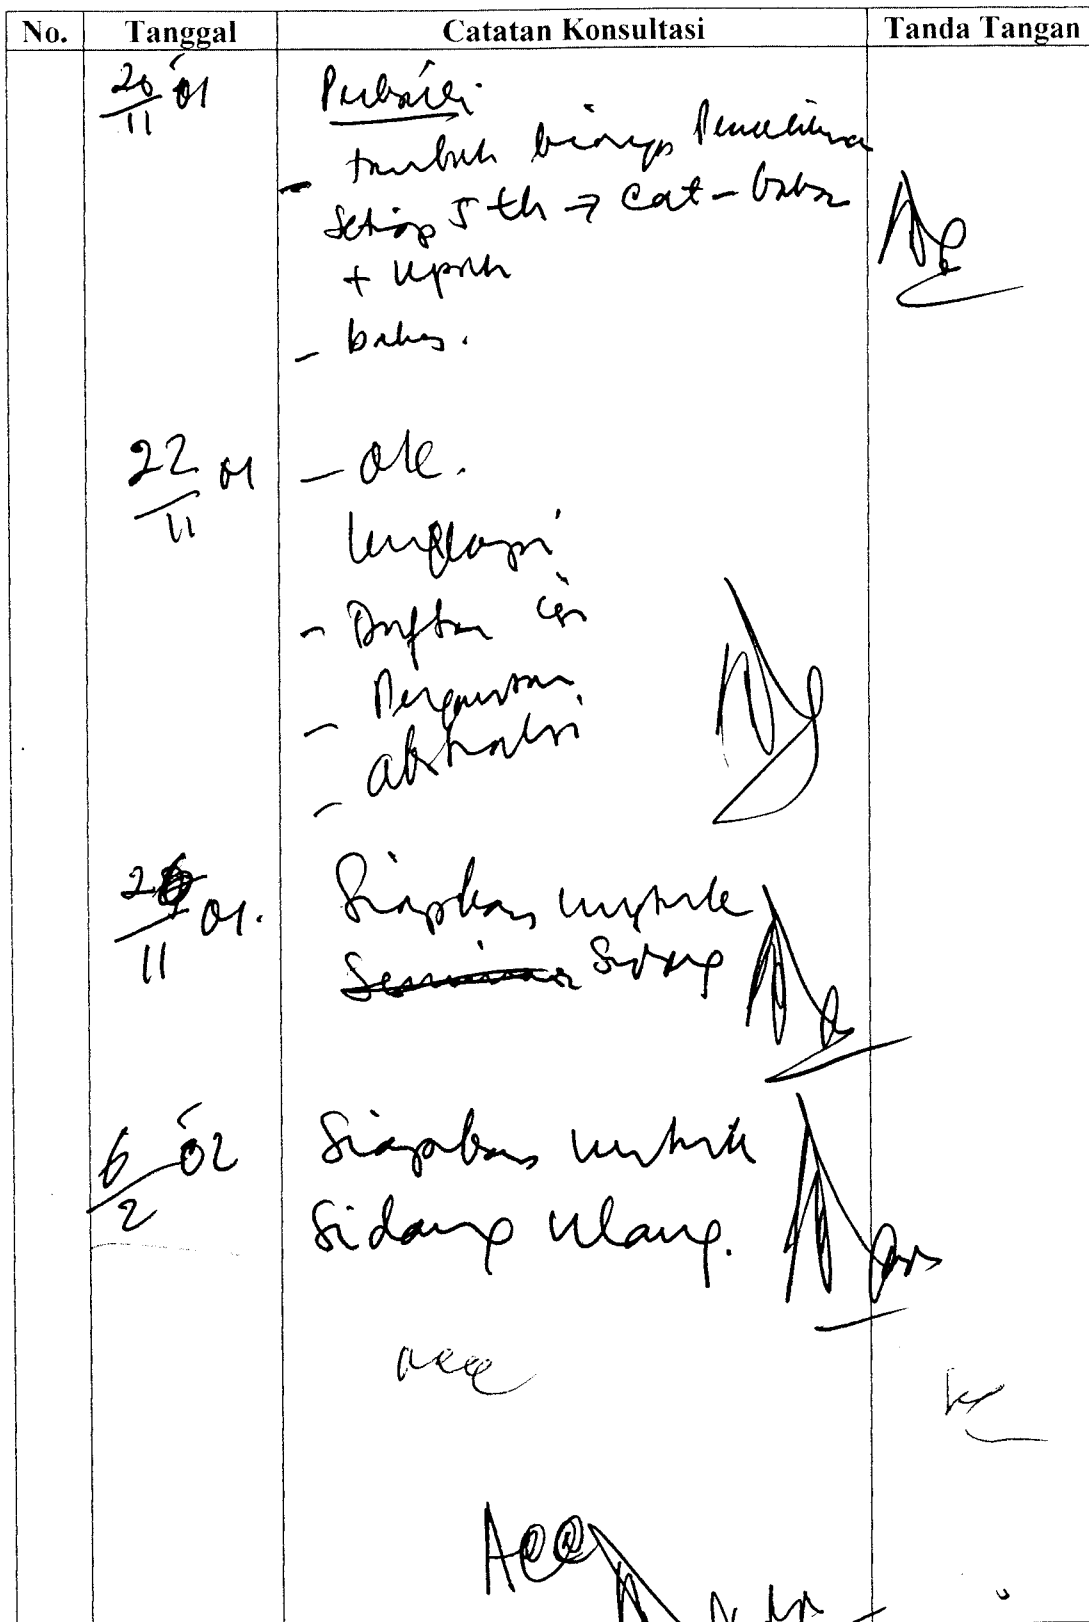 No. Tanggal Catatan Konsultasi Tanda Tangan
20/11 '01 Perbaiki
- tambah biaya
setiap 5 th → cat -
+ upah
- bahas.
22/11 01 - ok.
lengkapi
- Daftar isi
-
- abstraksi
11 01. Siapkan untuk
Sidang
6/2 '02 Siapkan untuk
Sidang Ulang.
acc
Acc